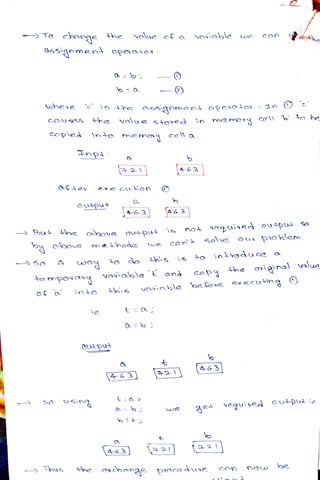 → To change the value of a variable we can
assignment operator.
a = b; — ①
b = a — ②
where '=' is the assignment operator. In ① '='
causes the value stored in memory cell 'b' to be
copied into memory cell a.
Inpt:
a b
721 463
after execution ①
output a b
463 463
→ But the above output is not required output so
by above methode we can't solve our problem.
→ So a way to do this is to introduce a
temporary variable 't' and copy the original value
of 'a' into this variable before executing ①
ie t = a;
a = b;
output
a t b
463 721 463
→ So using t = a;
a = b; we get required output ie
b = t;
a t b
463 721 721
→ Thus the exchange procedure can now be